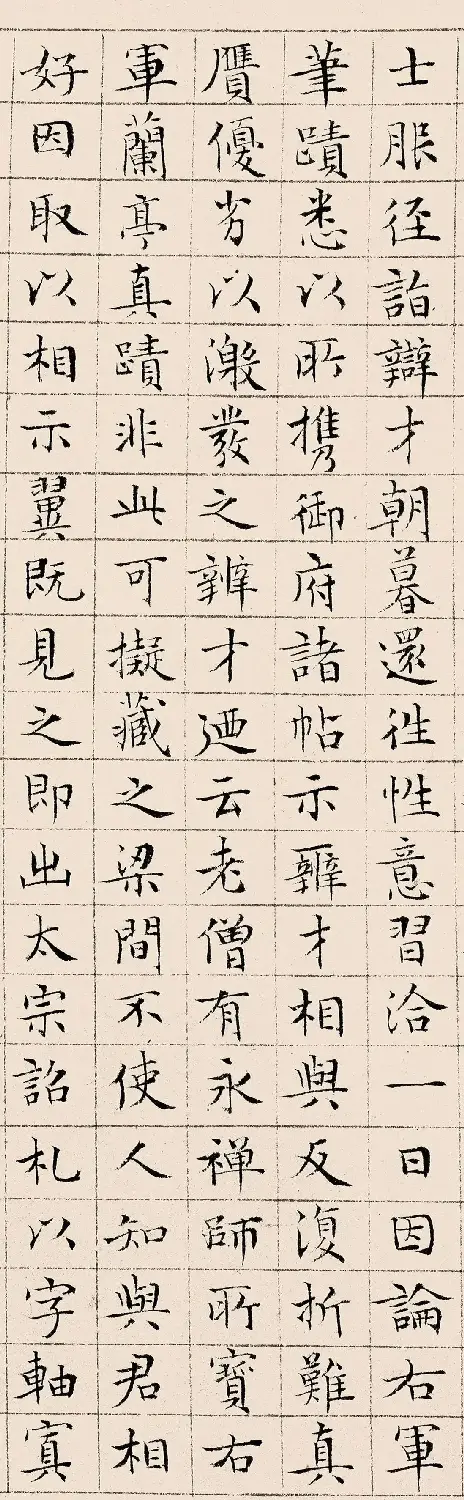 士服径詣辯才朝暮還往性意習洽一日因論右軍
筆蹟悉以所携御府諸帖示辯才相與反復折難真
贋優劣以激發之辯才迺云老僧有永禅師所寳右
軍蘭亭真蹟非此可擬藏之梁間不使人知與君相
好因取以相示翼既見之即出太宗詔札以字軸寘